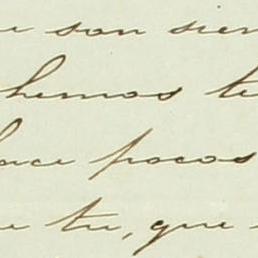 e son sien
hemos te
hace pocos
e tu, que